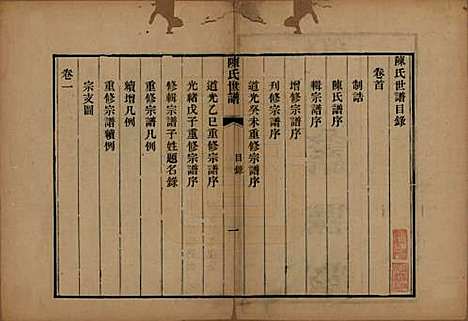 陳氏世譜目錄
卷首
制誥
陳氏譜序
輯宗譜序
增修宗譜序
刋修宗譜序
道光癸未重修宗譜序
陳氏世譜
目錄
一
道光乙巳重修宗譜序
光緒戊子重修宗譜序
修輯宗譜子姓題名錄
重修宗譜凡例
續增凡例
重修宗譜續例
宗支圖
卷一